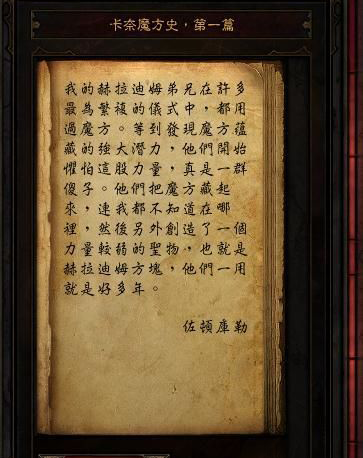 卡奈魔方史，第一篇
我的赫拉迪姆弟兄在許多
最為繁複的儀式中，都用
過魔方。等到發現魔方蘊
藏的強大潛力，他們開始
懼怕這股力量，真是一群
傻子。他們把魔方藏了起
來，連我都不知道在哪
裡，然後另外創造了一個
力量較弱的聖物，也就是
赫拉迪姆方塊，他們一用
就是好多年。
佐頓庫勒